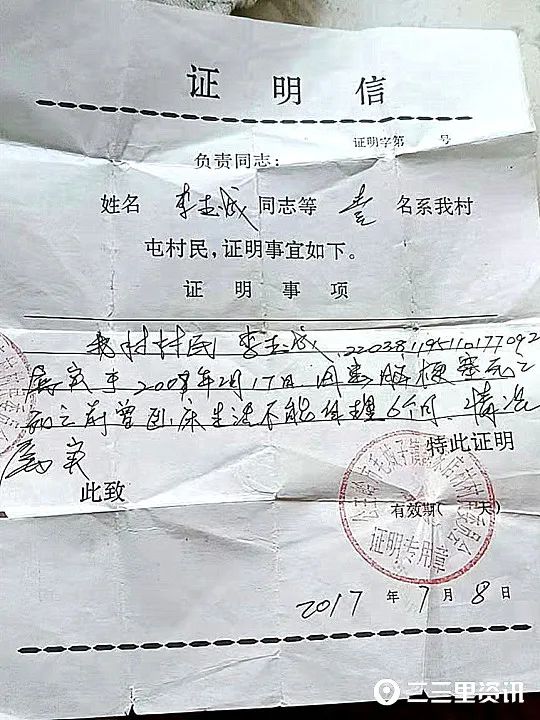 证明信
证明字第 号
负责同志：
姓名 李玉成 同志等 壹 名系我村
屯村民，证明事宜如下。
证明事项
我村村民 李玉成，220381195110177092
属实于2008年2月17日因患脑梗塞死亡
死亡前曾卧床生活不能自理6个月 情况
属实 特此证明
此致
有效期( 天)
公主岭市毛城子镇 村村民委员会
证明专用章
2017 年 7 月 8 日
三三里资讯